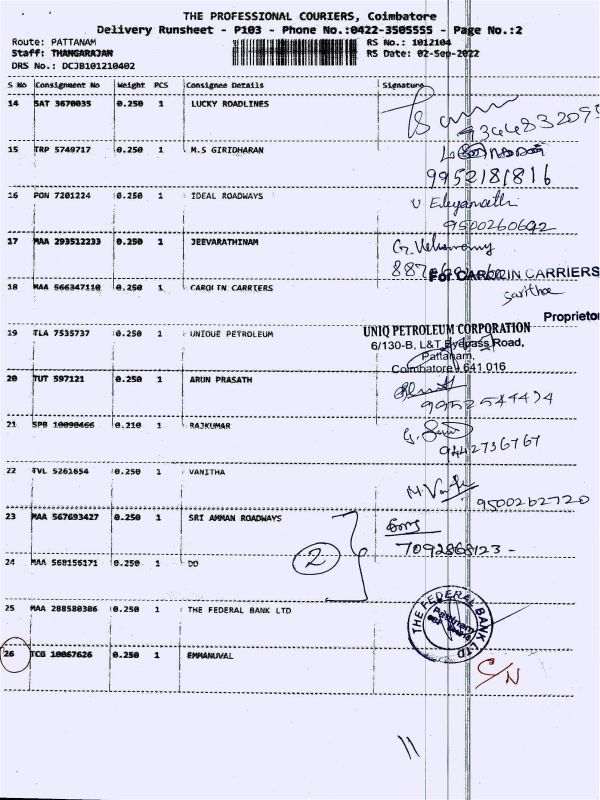 THE PROFESSIONAL COURIERS, Coimbatore
Delivery Runsheet - P103 - Phone No.:0422-3505555 - Page No.:2
Route: PATTANAM RS No.: 1012104
Staff: THANGARAJAN RS Date: 02-Sep-2022
DRS No.: DCJB101210402
S No Consignment No Weight PCS Consignee Details Signature
14 SAT 3670035 0.250 1 LUCKY ROADLINES
15 TRP 5749717 0.250 1 M.S GIRIDHARAN
9952181816
16 PON 7201224 0.250 1 IDEAL ROADWAYS
9500260692
17 MAA 293512233 0.250 1 JEEVARATHINAM
For CAROLIN CARRIERS
18 MAA 566347110 0.250 1 CAROLIN CARRIERS
Saritha
Proprietor
19 TLA 7535737 0.250 1 UNIQUE PETROLEUM
UNIQ PETROLEUM CORPORATION
6/130-B, L&T Byepass Road,
Pattanam,
Coimbatore 641 016
20 TUT 597121 0.250 1 ARUN PRASATH
21 SPB 10090466 0.210 1 RAJKUMAR
9442736767
22 TVL 5261654 0.250 1 VANITHA
9500262720
23 MAA 567693427 0.250 1 SRI AMMAN ROADWAYS
7092868123 -
2
24 MAA 568156171 0.250 1 DO
25 MAA 288580306 0.250 1 THE FEDERAL BANK LTD
THE FEDERAL BANK LTD
26 TCB 10067626 0.250 1 EMMANUVAL
C/N
11